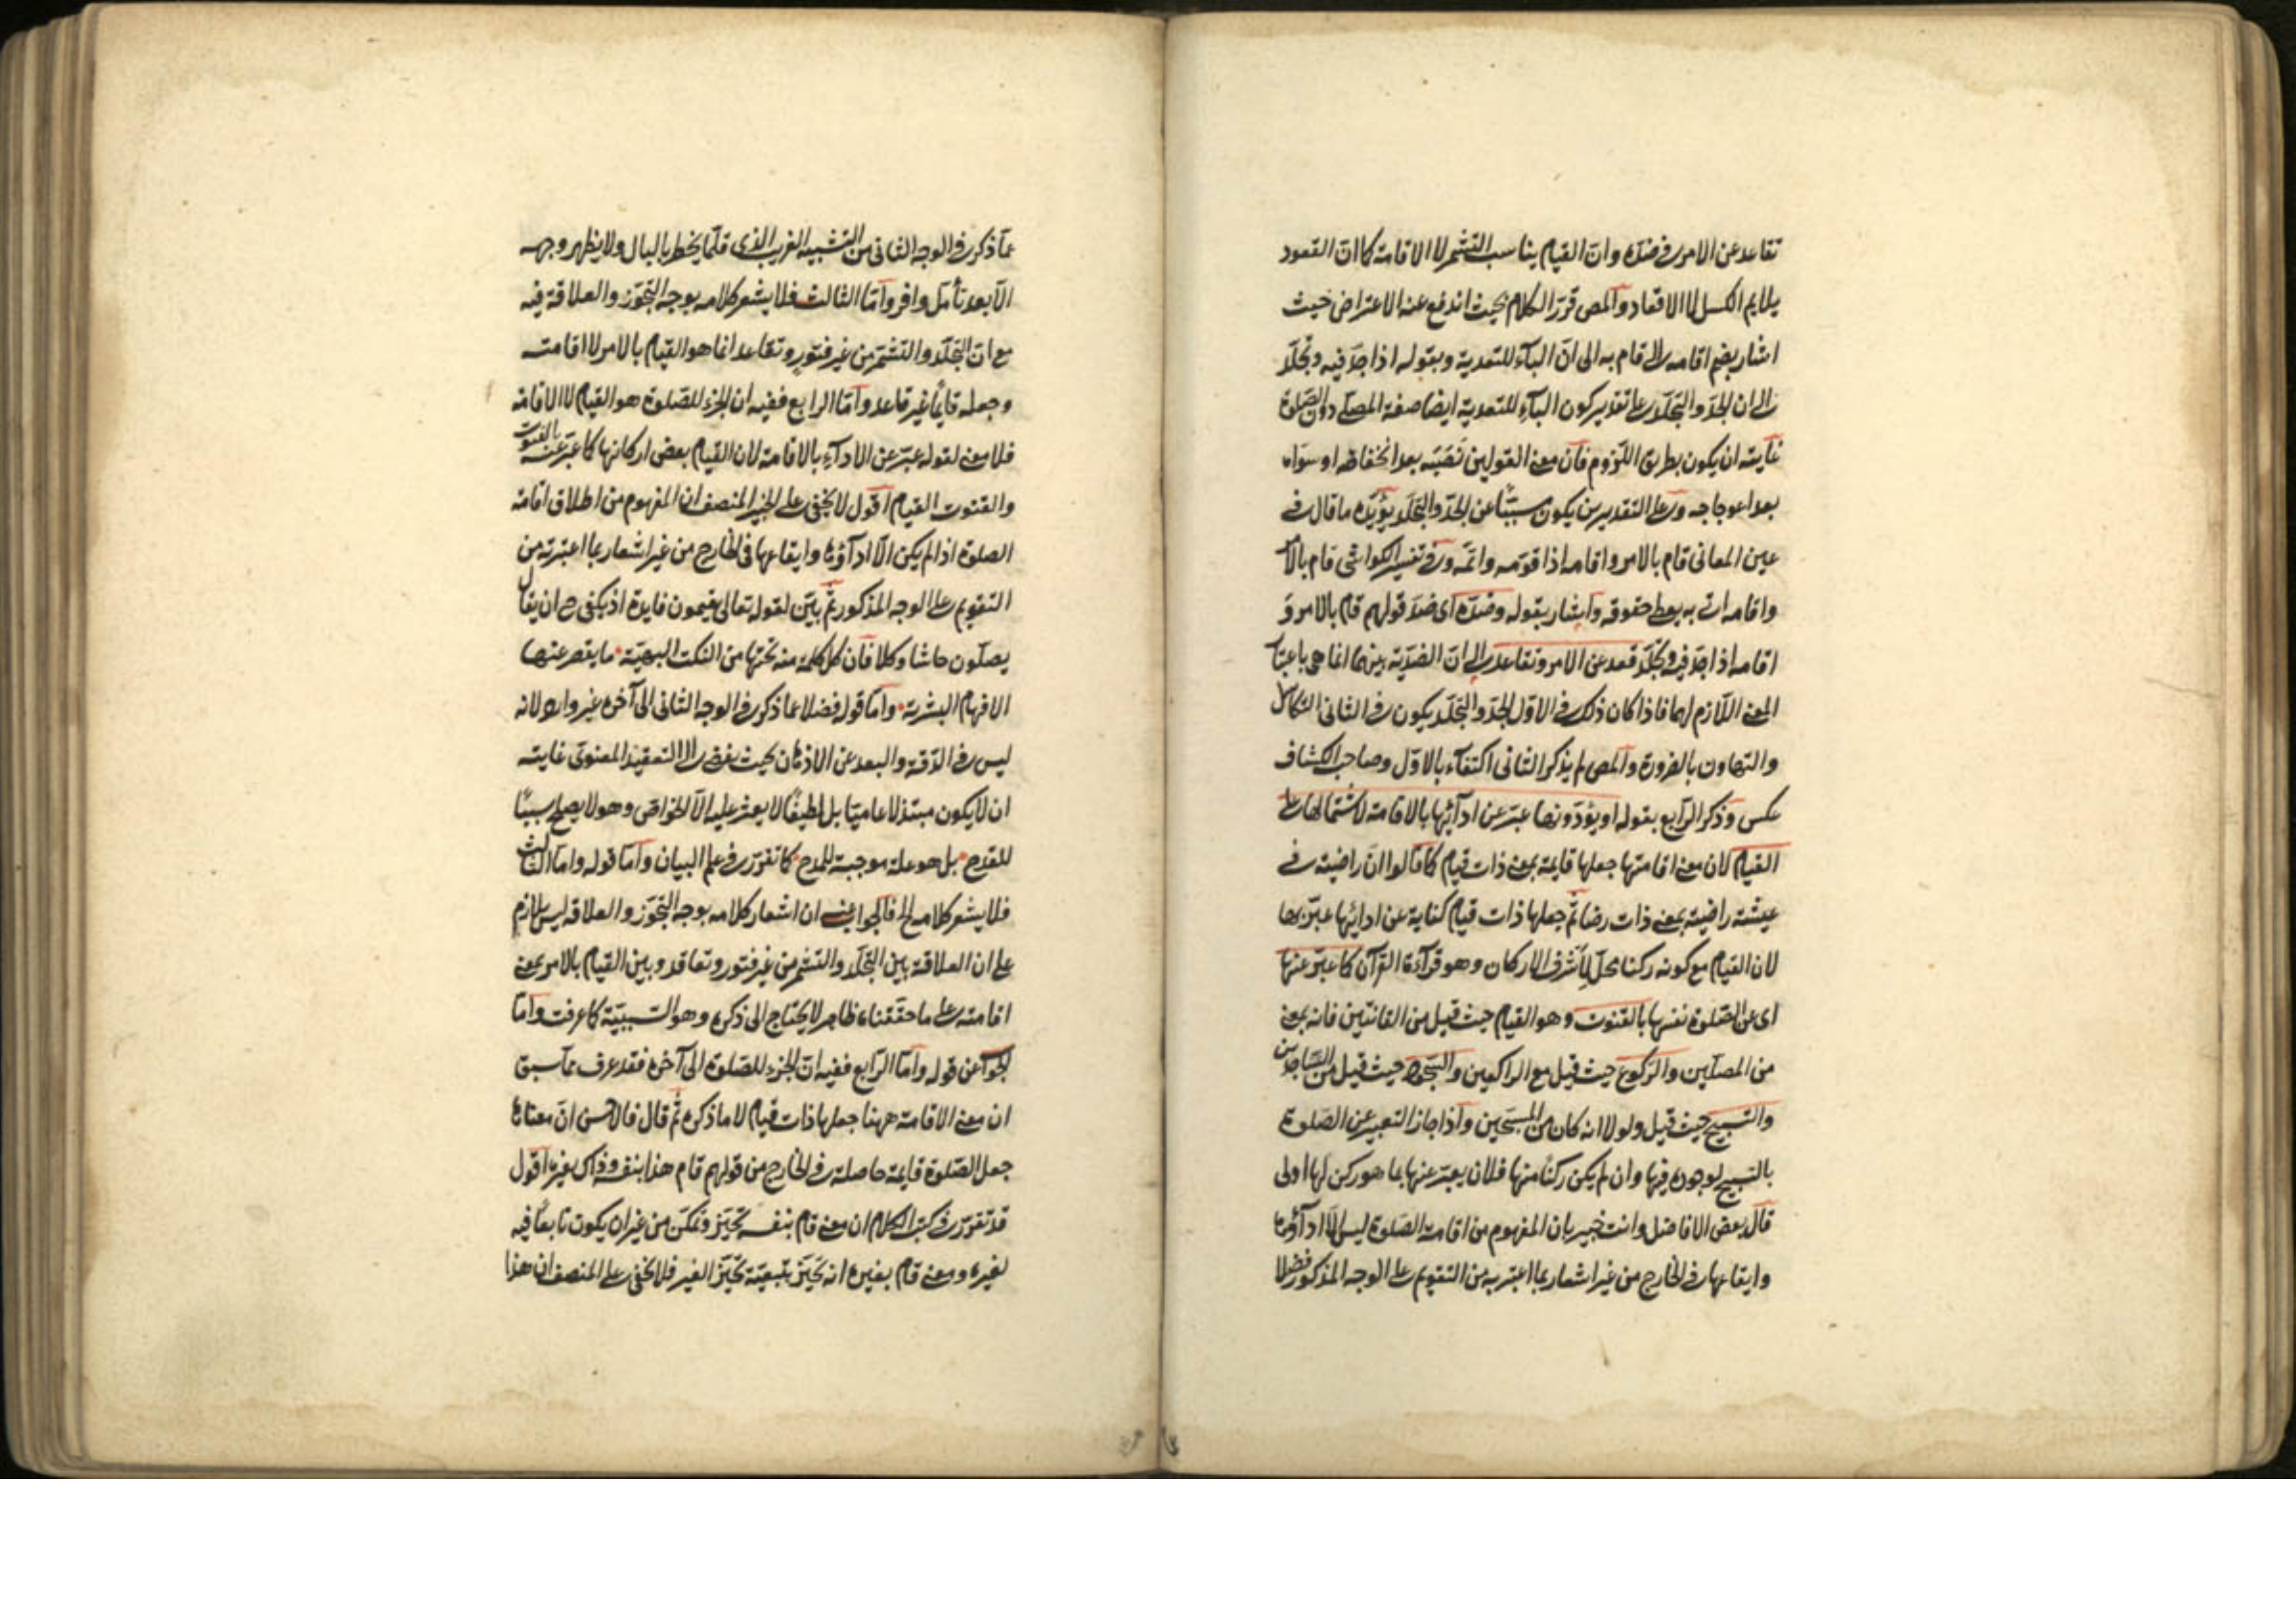 تقاعد عن الامر في ضده وان القيام يناسب التشمر لا الاقامة كما ان القعود
يلايم الكسل لا الاقعاد والمص قرر الكلام بحيث اندفع عنه الاعتراض حيث
اشار بضم اقامه الى قام به الى ان الباء للتعدية وبقوله اذا جد فيه وتجلد
الى ان الجد والتجلد على تقدير كون الباء للتعدية ايضا صفة المصلي دون الصلوة
غايته ان يكون بطريق اللزوم فان معنى القولين نصبته بعد انخفاضه او سواه
بعد اعوجاجه وعلى التقديرين يكون مسببا عن الجد والتجلد يؤيده ما قال في
عين المعاني قام بالامر واقامه اذا قومه واتمه وفي تفسير الكواشي قام بالامر
واقامه اتى به يعطى حقوقه واشار بقوله وضده اى ضد قولهم قام بالامر و
اقامه اذا جد فيه وتجلد قعد عن الامر وتقاعد الى ان الضدية بينهما انما هي باعتبار
المعنى اللازم لهما فاذا كان ذلك في الاول الجد والتجلد يكون في الثاني التكاسل
والتهاون بالضرورة والمص لم يذكر الثاني اكتفاء بالاول وصاحب الكشاف
عكس وذكر الرابع بقوله او يؤدونها عبر عن ادآئها بالاقامة لاشتمالها على
القيام لان معنى اقامتها جعلها قايمة بمعنى ذات قيام كما قالوا ان راضية في
عيشة راضية بمعنى ذات رضا ثم جعلها ذات قيام كناية عن ادائها عبر بها
لان القيام مع كونه ركنا محل لأشرف الاركان وهو قرآءة القرآن كما عبر عنها
اى عن الصلوة نفسها بالقنوت وهو القيام حيث قيل من القانتين فانه بمعنى
من المصلين والركوع حيث قيل مع الراكعين والسجود حيث قيل من الساجدين
والتسبيح حيث قيل ولولا انه كان من المسبحين واذا جاز التعبير عن الصلوة
بالتسبيح لوجوده فيها وان لم يكن ركنا منها فلان يعبر عنها بما هو ركن لها اولى
قال بعض الافاضل وانت خبير بان المفهوم من اقامة الصلوة ليس الا ادآؤها
وايقاعها في الخارج من غير اشعار بما اعتبر به من التقويم على الوجه المذكور فضلا
عما ذكره في الوجه الثاني من التشبيه الغريب الذي قلما يخطر بالبال ولا يظهر وجهه
الا بعد تأمل وافر واما الثالث فلا يشعر كلامه بوجه التجوز والعلاقة فيه
مع ان التجلد والتشمر من غير فتور وتقاعد انما هو القيام بالامر لا اقامته
وجعله قايما غير قاعد واما الرابع ففيه ان الجزء للصلوة هو القيام لا الاقامة
فلا معنى لقوله عبر عن الادآء بالاقامة لان القيام بعض اركانها كما عبر عنه بالقنوت
والقنوت القيام اقول لا يخفى على الخبير المنصف ان المفهوم من اطلاق اقامة
الصلوة اذا لم يكن الا ادآؤها وايقاعها في الخارج من غير اشعار بما اعتبرته من
التقويم على الوجه المذكور ثم يبين لقوله تعالى يقيمون فايدة اذ يكفي ح ان يقال
يصلون حاشا وكلا فان كل كلمة منه تحتها من النكت البهية ما يقصر عنها
الافهام البشرية واما قوله فضلا عما ذكره في الوجه الثاني الى آخره غير وارد لانه
ليس في الدقة والبعد عن الاذهان بحيث يفضى الى التعقيد المعنوى غايته
ان لا يكون مبتذلا عاميا بل لطيفا لا يعثر عليه الا الخواص وهو لا يصلح سببا
للقدح بل هو علة موجبة للمدح كما تقرر في علم البيان واما قوله واما الثالث
فلا يشعر كلامه الخ فالجواب عنه ان اشعار كلامه بوجه التجوز والعلاقة ليس بلازم
على ان العلاقة بين التجلد والتشمر من غير فتور وتقاعد وبين القيام بالامر بمعنى
اقامته على ما حققناه ظاهر لا يحتاج الى ذكره وهو السببية كما عرفت واما
الجواب عن قوله واما الرابع ففيه ان الجزء للصلوة الى آخره فقد عرف مما سبق
ان معنى الاقامة ههنا جعلها ذات قيام لا ما ذكره ثم قال فالاحسن ان معناها
جعل الصلوة قايمة حاصلة في الخارج من قولهم قام هذا بنفسه وذاك بغيره اقول
قد تقرر في كتب الكلام ان معنى قام بنفسه تحيز وتمكن من غير ان يكون تابعا فيه
لغيره ومعنى قام بغيره انه تحيز بتبعية تحيز الغير فلا يخفى على المنصف ان هذا